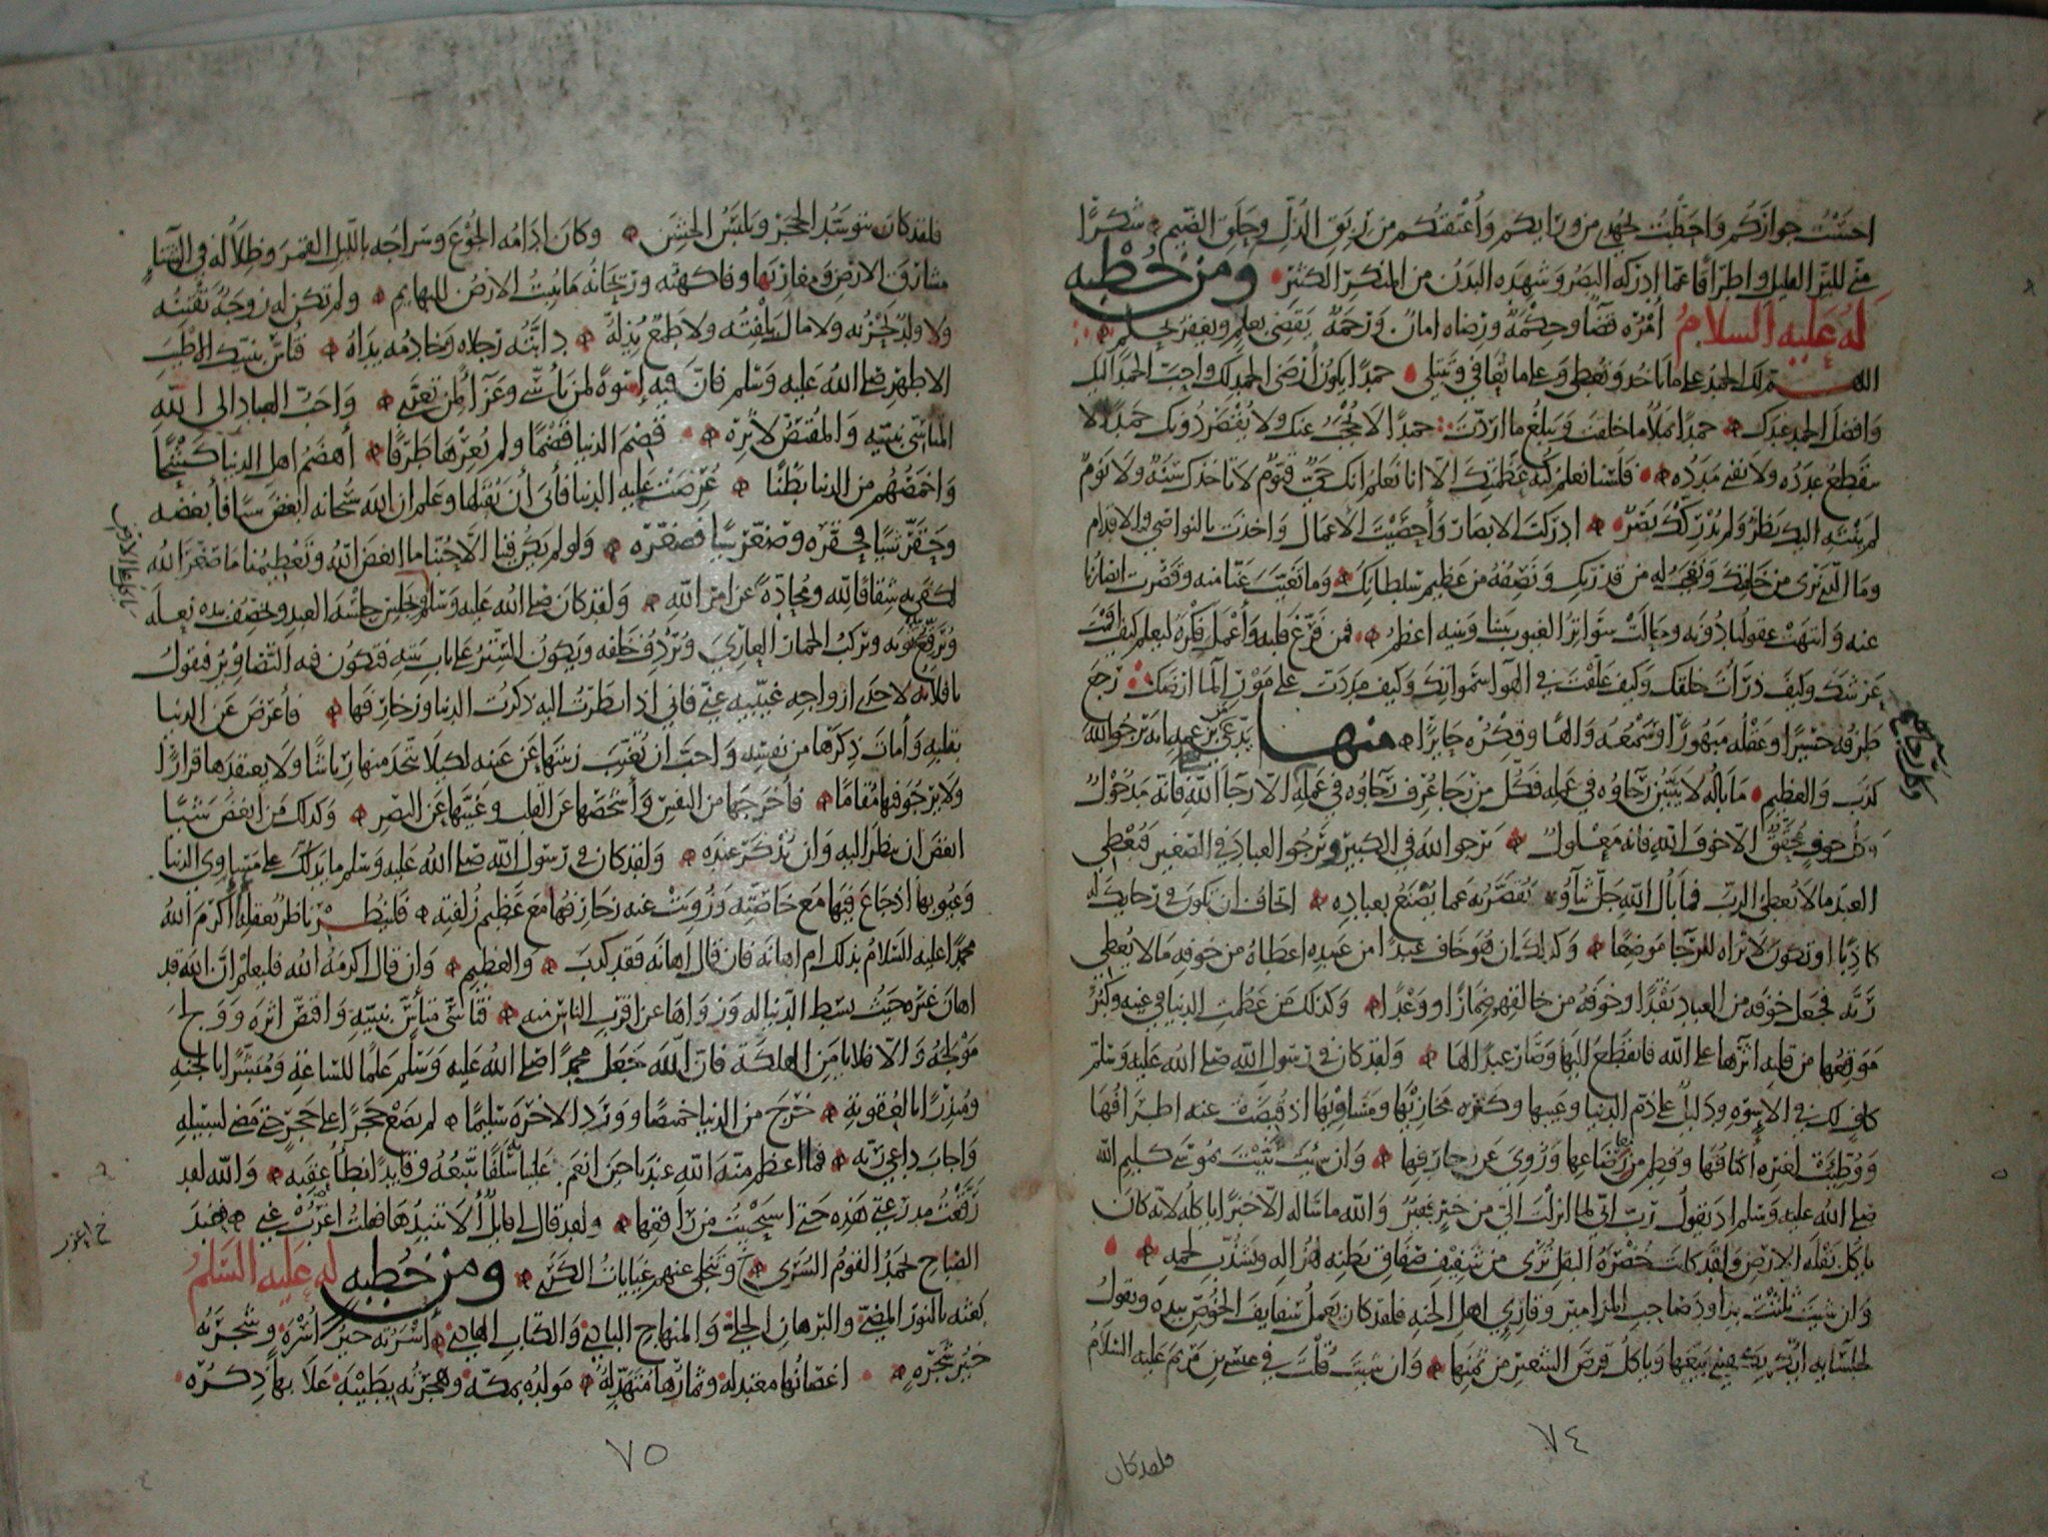 احسنت جواركم واحطت بجهدي من ورايكم واعتقتكم من ربق الذل وحلق الضيم شكرا
مني للبر القليل واطراقا عما ادركه البصر وشهده البدن من المنكر الكثير ومن خطبه
له عليه السلام امره قضا وحكمة ورضاه امان ورحمة يقضي بعلم ويغفر بحلم
اللهم لك الحمد على ما تاخذ وتعطي وعلى ما تعافي وتبتلي حمدا يكون ارضى الحمد لك واحب الحمد اليك
وافضل الحمد عندك حمدا يملا ما خلقت ويبلغ ما اردت حمدا لا يحجب عنك ولا يقصر دونك حمدا لا
ينقطع عدده ولا يفنى مدده فلسنا نعلم كنه عظمتك الا انا نعلم انك حي قيوم لا تاخذك سنة ولا نوم
لم ينته اليك نظر ولم يدركك بصر ادركت الابصار واحصيت الاعمال واخذت بالنواصي والاقدام
وما الذي نرى من خلقك ونعجب له من قدرتك ونصفه من عظيم سلطانك وما تغيب عنا منه وقصرت ابصارنا
عنه وانتهت عقولنا دونه وحالت سواتر الغيوب بيننا وبينه اعظم فمن فرغ قلبه واعمل فكره ليعلم كيف اقمت
عرشك وكيف ذرات خلقك وكيف علقت في الهوا سمواتك وكيف مددت على مور الما ارضك رجع
طرفه حسيرا وعقله مبهورا وسمعه والها وفكره حايرا منها يدعي بزعمه انه يرجو الله
كذب والعظيم ما باله لا يتبين رجاوه في عمله فكل من رجا عرف رجاوه في عمله الا رجا الله فانه مدخول
وكل خوف محقق الا خوف الله فانه معلول يرجو الله في الكبير ويرجو العباد في الصغير فيعطي
العبد ما لا يعطي الرب فما بال الله جل ثناوه يقصر به عما يصنع بعباده اتخاف ان تكون في رجايك له
كاذبا او تكون لا تراه للرجا موضعا وكذلك ان هو خاف عبدا من عبيده اعطاه من خوفه ما لا يعطي
ربه فجعل خوفه من العباد نقدا وخوفه من خالقهم ضمارا ووعدا وكذلك من عظمت الدنيا في عينه وكبر
موقعها من قلبه اثرها على الله فانقطع اليها وصار عبدا لها ولقد كان في رسول الله صلى الله عليه وسلم
كاف لك في الاسوه ودليل على ذم الدنيا وعيبها وكثره مخازيها ومساويها اذ قبضت عنه اطرافها
ووطيت لغيره اكنافها وفطم من رضاعها وزوي عن زخارفها وان شيت ثنيت بموسى كليم الله
صلى الله عليه وسلم اذ يقول رب اني لما انزلت الي من خير فقير والله ما ساله الا خبزا ياكله لانه كان
ياكل بقلة الارض ولقد كانت خضرة البقل ترى من شفيف صفاق بطنه لهزاله وتشذب لحمه
وان شيت ثلثت بداود صاحب المزامير وقاري اهل الجنه فلقد كان يعمل سفايف الخوص بيده ويقول
لجلسايه ايكم يكفيني بيعها وياكل قرص الشعير من ثمنها وان شيت قلت في عيسى بن مريم عليه السلام
٧٤
فلقد كان
فلقد كان يتوسد الحجر ويلبس الخشن وكان ادامه الجوع وسراجه بالليل القمر وظلاله في الشتا
مشارق الارض ومغاربها وفاكهته وريحانه ما تنبت الارض للبهايم ولم تكن له زوجة تفتنه
ولا ولد يحزنه ولا مال يلفته ولا طمع يذله دابته رجلاه وخادمه يداه فتاس بنبيك الاطيب
الاطهر صلى الله عليه وسلم فان فيه اسوة لمن تاسى وعزا لمن تعزى واحب العباد الى الله
المتاسي بنبيه والمقتص لاثره قضم الدنيا قضما ولم يعرها طرفا اهضم اهل الدنيا كشحا
واخمصهم من الدنيا بطنا عرضت عليه الدنيا فابى ان يقبلها وعلم ان الله سبحانه ابغض شيا فابغضه
وحقر شيا فحقره وصغر شيا فصغره ولو لم يكن فينا الا حبنا ما ابغض الله وتعظيمنا ما صغر الله
لكفى به شقاقا لله ومحادة عن امر الله ولقد كان صلى الله عليه وسلم يجلس جلسة العبد ويخصف بيده نعله
ويرقع ثوبه ويركب الحمار العاري ويردف خلفه ويكون الستر على باب بيته فتكون فيه التصاوير فيقول
يا فلانة لاحدى ازواجه غيبيه عني فاني اذا نظرت اليه ذكرت الدنيا وزخارفها فاعرض عن الدنيا
بقلبه وامات ذكرها من نفسه واحب ان تغيب زينتها عن عينه لكيلا يتخذ منها رياشا ولا يعتقدها قرارا
ولا يرجو فيها مقاما فاخرجها من النفس واشخصها عن القلب وغيبها عن البصر وكذلك من ابغض شيا
ابغض ان ينظر اليه وان يذكر عنده ولقد كان في رسول الله صلى الله عليه وسلم ما يدلك على مساوي الدنيا
وعيوبها اذ جاع فيها مع خاصته وزويت عنه زخارفها مع عظيم زلفته فلينظر ناظر بعقله اكرم الله
محمدا عليه السلام بذلك ام اهانه فان قال اهانه فقد كذب والعظيم وان قال اكرمه الله فليعلم ان الله قد
اهان غيره حيث بسط الدنيا له وزواها عن اقرب الناس منه فتاسى متاس بنبيه واقتص اثره وولج
مولجه والا فلا يامن الهلكة فان الله جعل محمدا صلى الله عليه وسلم علما للساعة ومبشرا بالجنه
ومنذرا بالعقوبة خرج من الدنيا خميصا وورد الاخرة سليما لم يضع حجرا على حجر حتى مضى لسبيله
واجاب داعي ربه فما اعظم منة الله عندنا حين انعم علينا به سلفا نتبعه وقايدا نطا عقبه والله لقد
رقعت مدرعتي هذه حتى استحييت من راقعها ولقد قال لي قايل الا تنبذها فقلت اغرب عني فعند
الصباح يحمد القوم السرى وتنجلي عنهم غيابات الكرى ومن خطبه له عليه السلم
بعثه بالنور المضي والبرهان الجلي والمنهاج البادي والكتاب الهادي اسرته خير اسرة وشجرته
خير شجره اغصانها معتدله وثمارها متهدلة مولده بمكة وهجرته بطيبة علا بها ذكره
٧٥